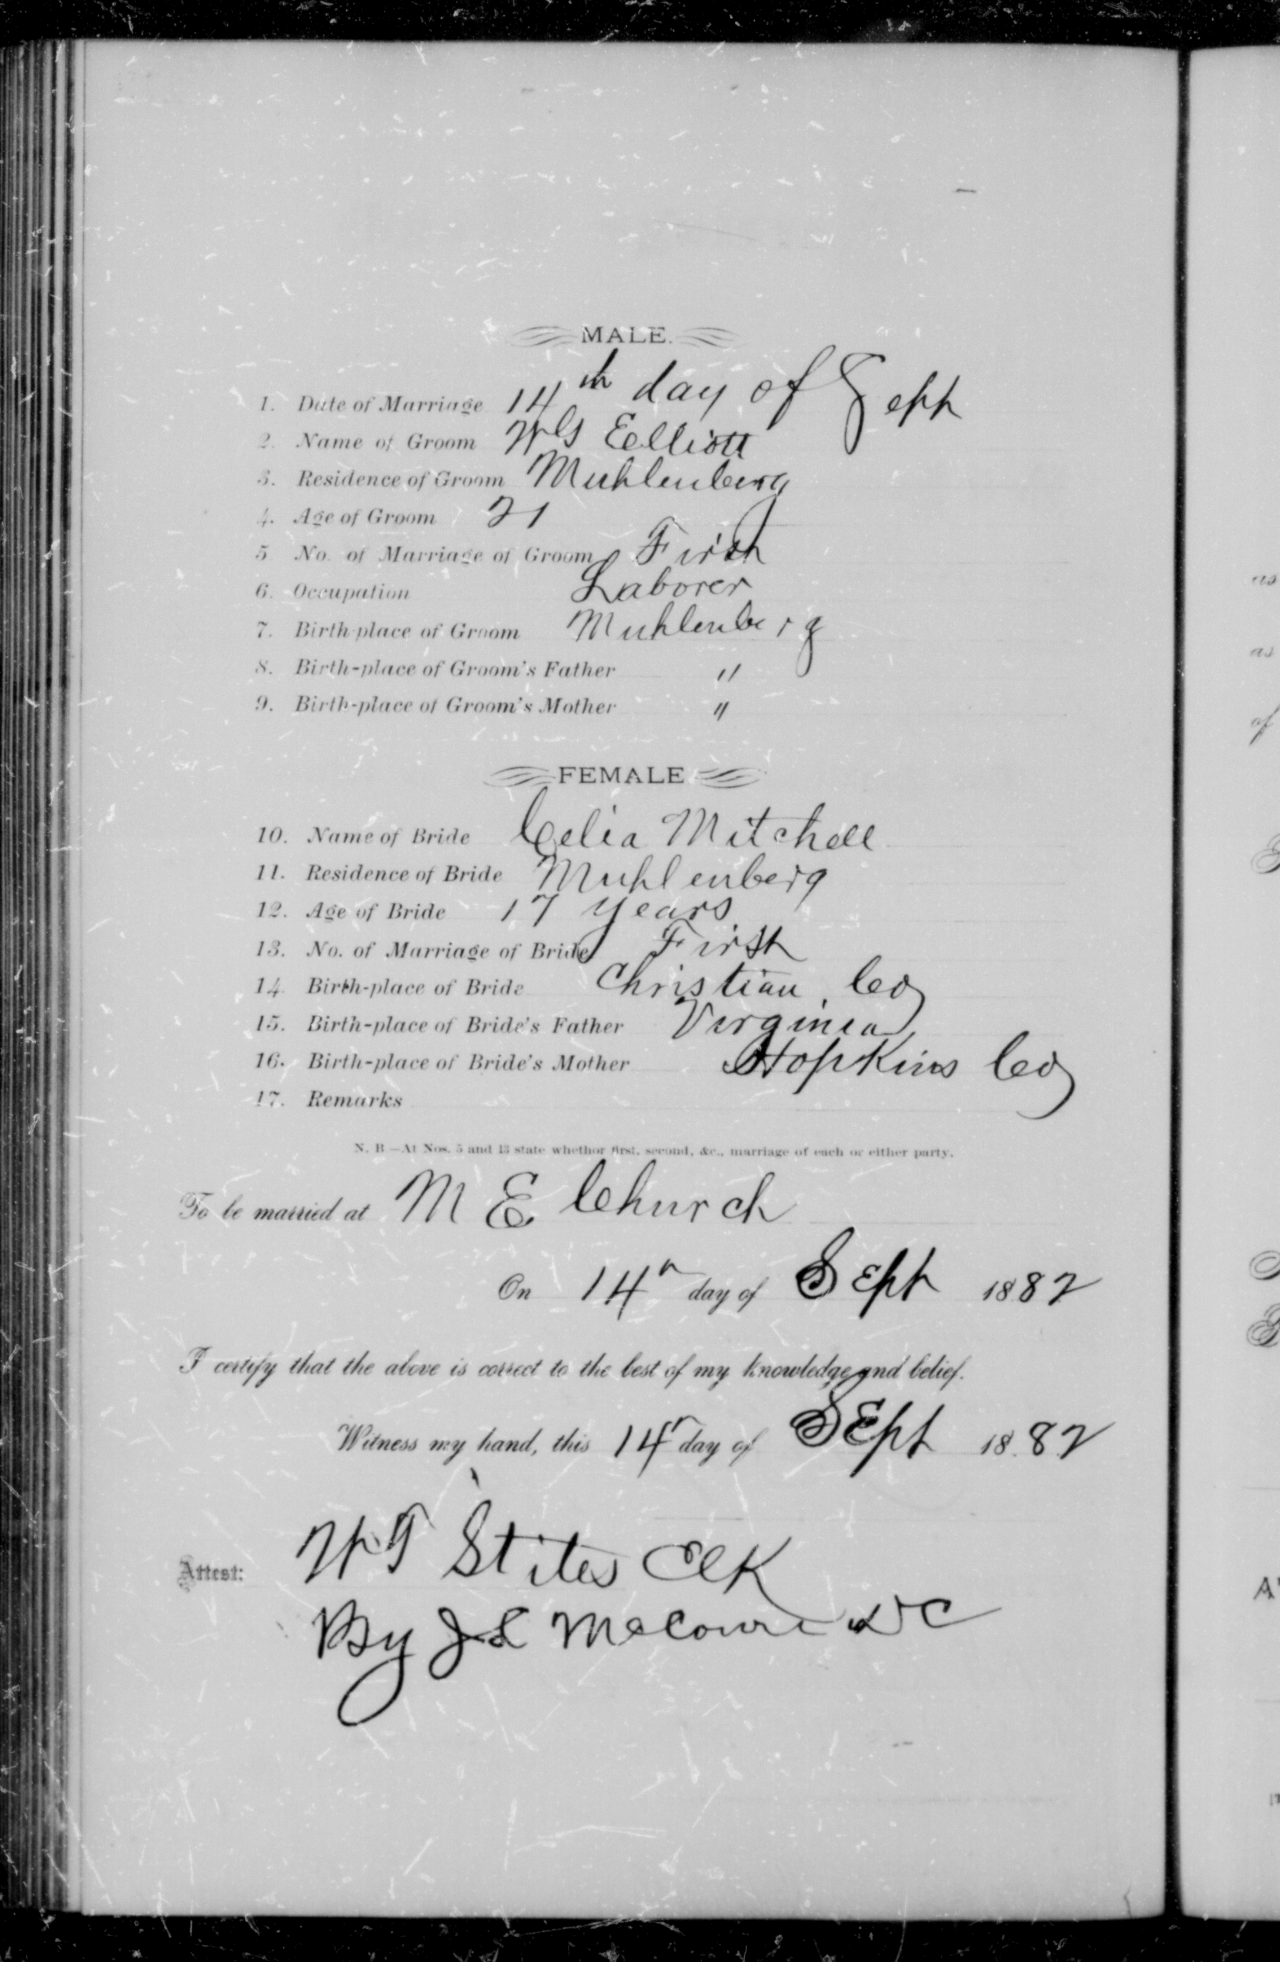 MALE.
1. Date of Marriage 14th day of Sept
2. Name of Groom Wls Elliott
3. Residence of Groom Muhlenberg
4. Age of Groom 21
5 No. of Marriage of Groom First
6. Occupation Laborer
7. Birth-place of Groom Muhlenberg
8. Birth-place of Groom's Father "
9. Birth-place of Groom's Mother "
FEMALE
10. Name of Bride Celia Mitchell
11. Residence of Bride Muhlenberg
12. Age of Bride 17 years
13. No. of Marriage of Bride First
14 Birth-place of Bride Christian Coy
15. Birth-place of Bride's Father Virginia
16. Birth-place of Bride's Mother Hopkins Coy
17. Remarks
N. B—At Nos. 5 and 13 state whether first, second, &c., marriage of each or either party.
To be married at M E Church
On 14th day of Sept 1882
I certify that the above is correct to the best of my knowledge and belief.
Witness my hand, this 14th day of Sept 1882
Attest: WT Stites Clk
By J L DC